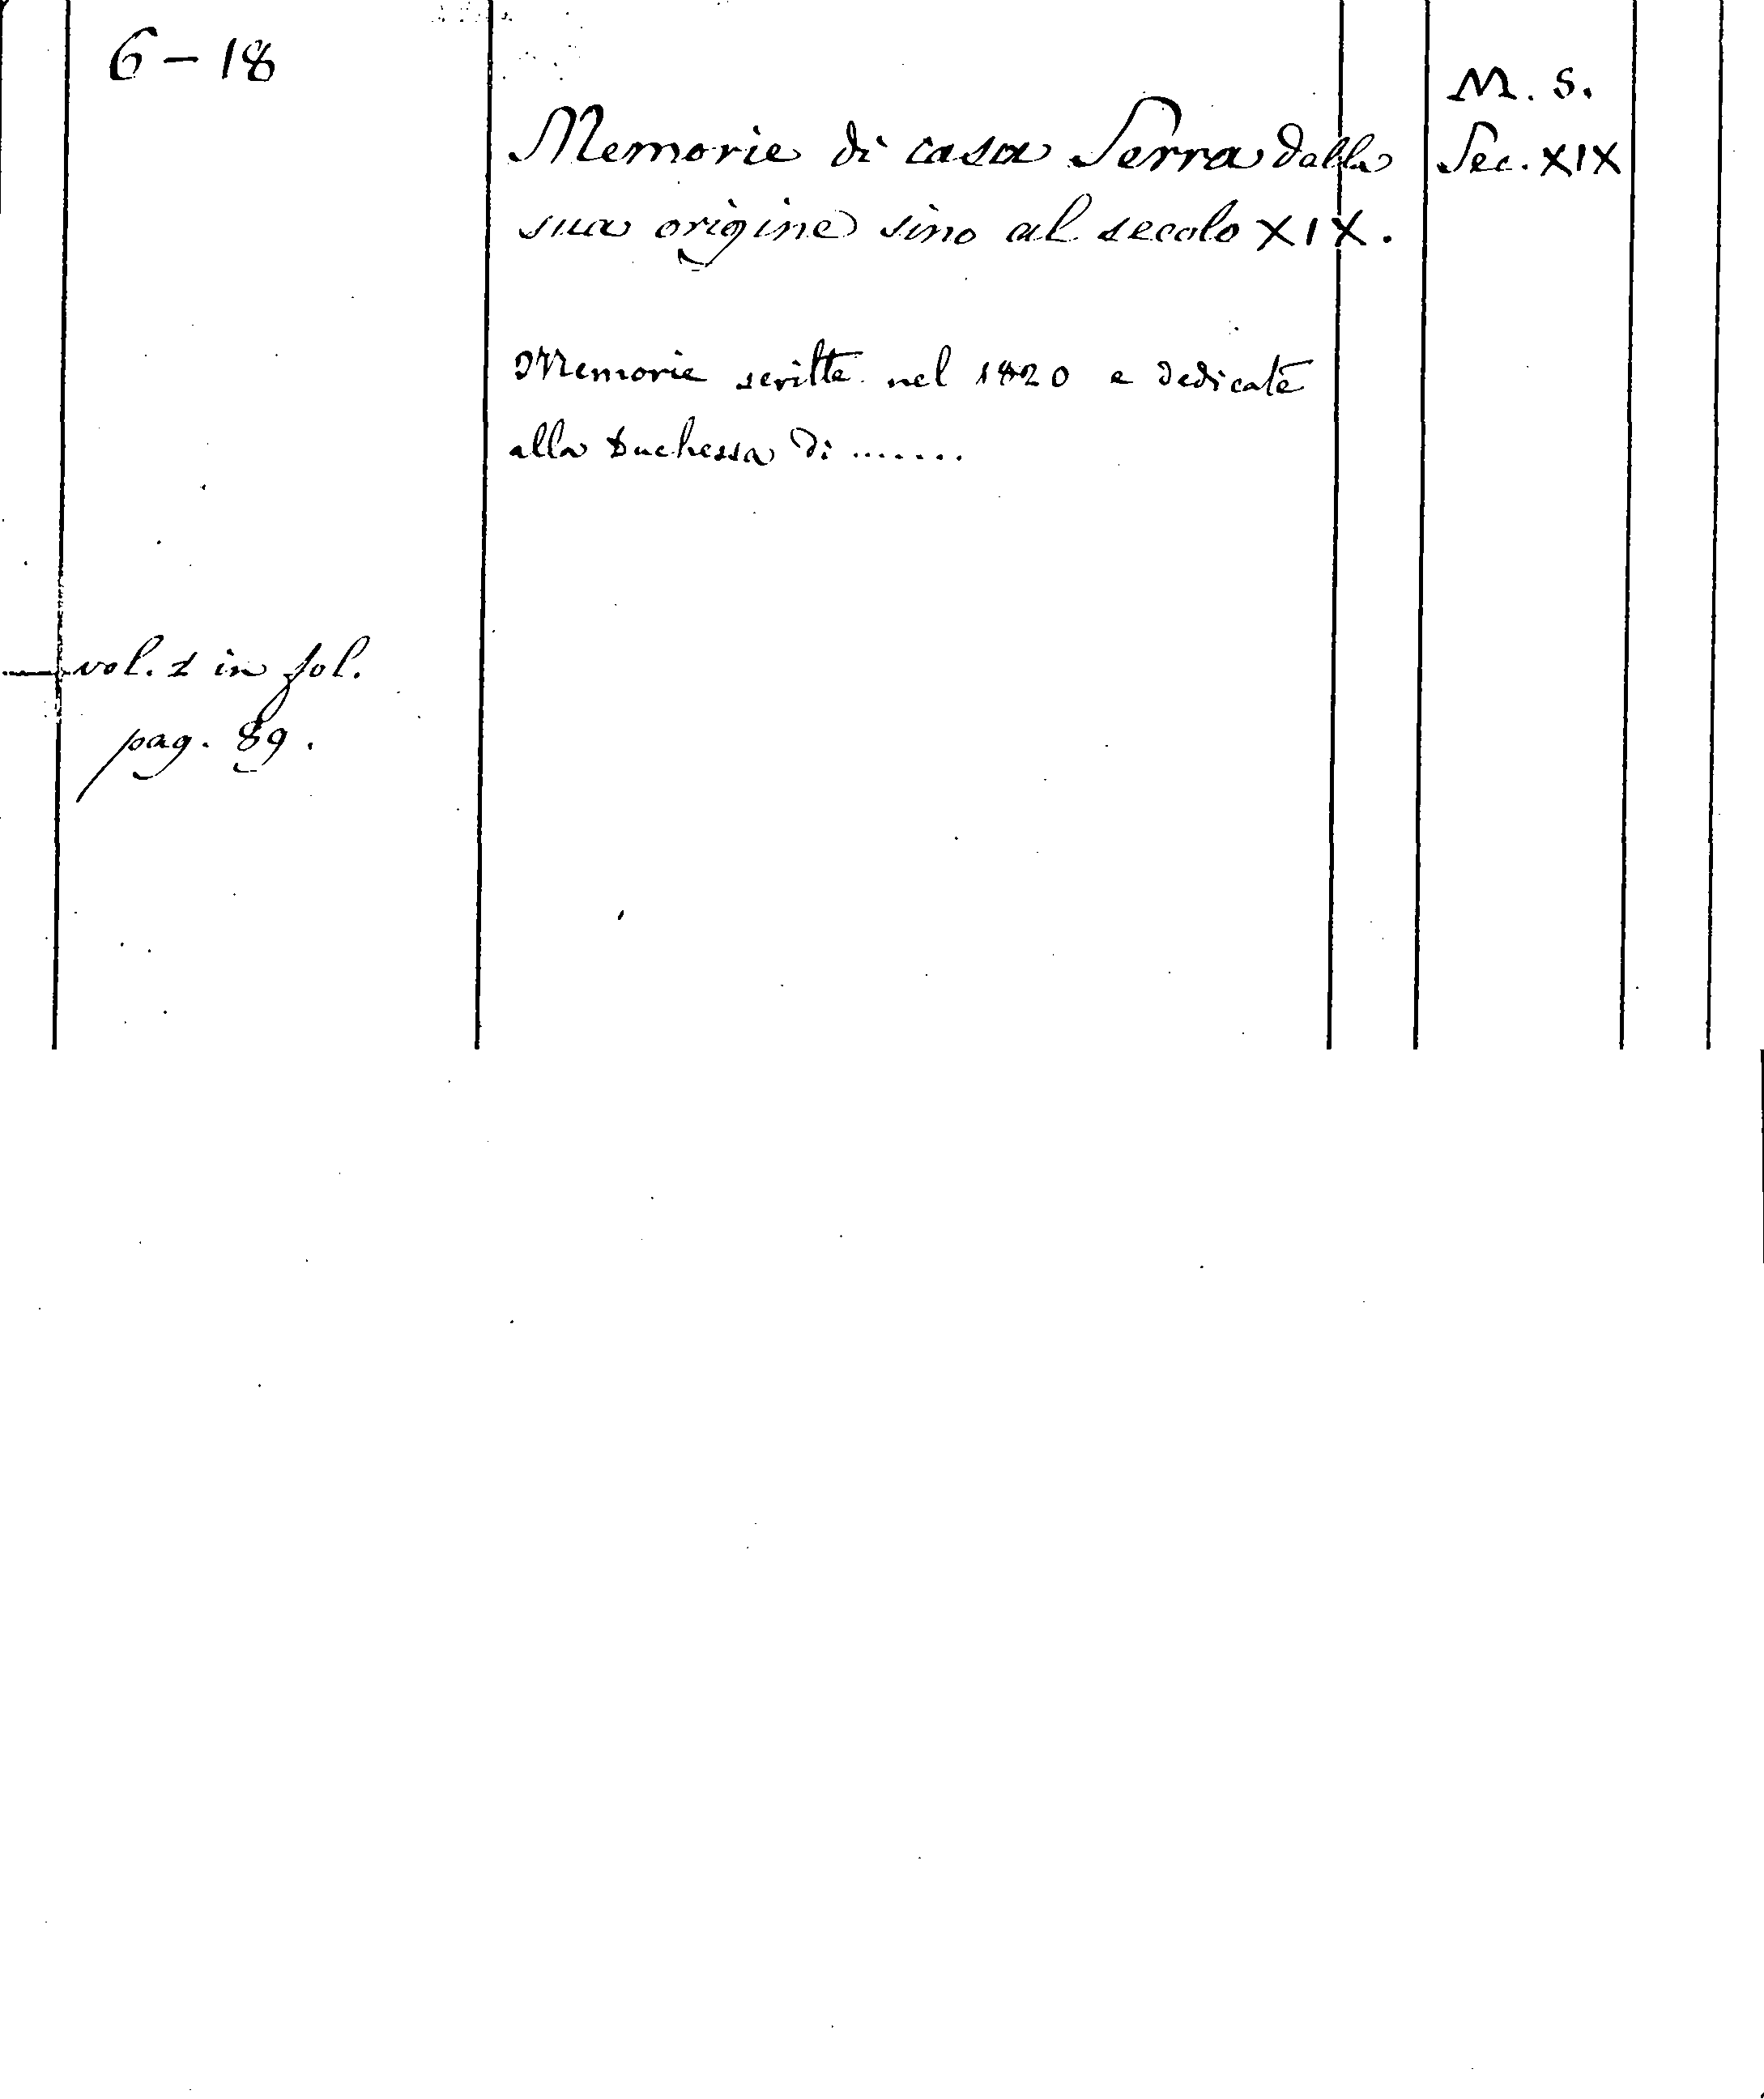 6-18
M. S.
Memorie di casa Serra dalla
Sec. XIX
sua origine sino al secolo XIX.
Memorie scritte nel 1820 e dedicate
alla Duchessa di .......
vol. 1 in fol.
pag. 89.